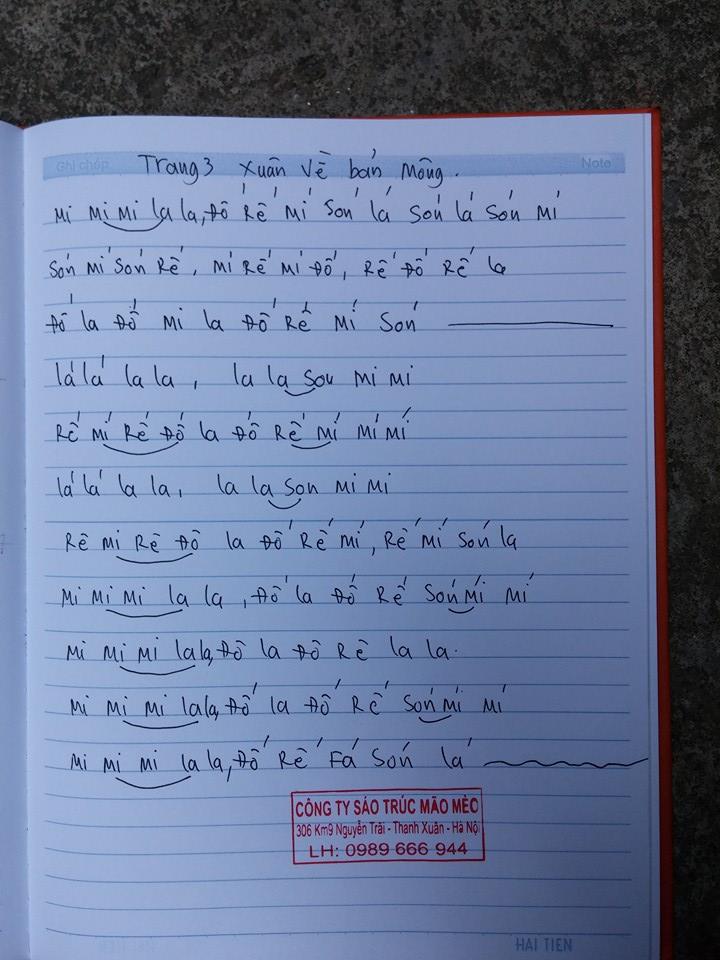 Ghi chép Trang 3 Xuân Về bản Mông. Note
Mi Mi Mi la la, Đố Rế Mí Són lá Són lá Són Mí
Són Mí Són Rế, Mí Rế Mí Đố, Rế Đố Rế la
Đố la Đố Mi la Đố Rế Mí Són
lá lá la la, la la Son Mi Mi
Rế Mí Rế Đố la Đố Rế Mí Mí Mí
lá lá la la, la la Son Mi Mi
Rê Mi Rê Đô la Đố Rế Mí, Rế Mí Són la
Mi Mi Mi la la, Đố la Đố Rế Són Mí Mí
Mi Mi Mi la la, Đô la Đô Rê la la.
Mi Mi Mi la la, Đố la Đố Rế Són Mí Mí
Mi Mi Mi la la, Đố Rế Fá Són lá
CÔNG TY SÁO TRÚC MÃO MÈO
306 Km9 Nguyễn Trãi - Thanh Xuân - Hà Nội
LH: 0989 666 944
HAI TIEN